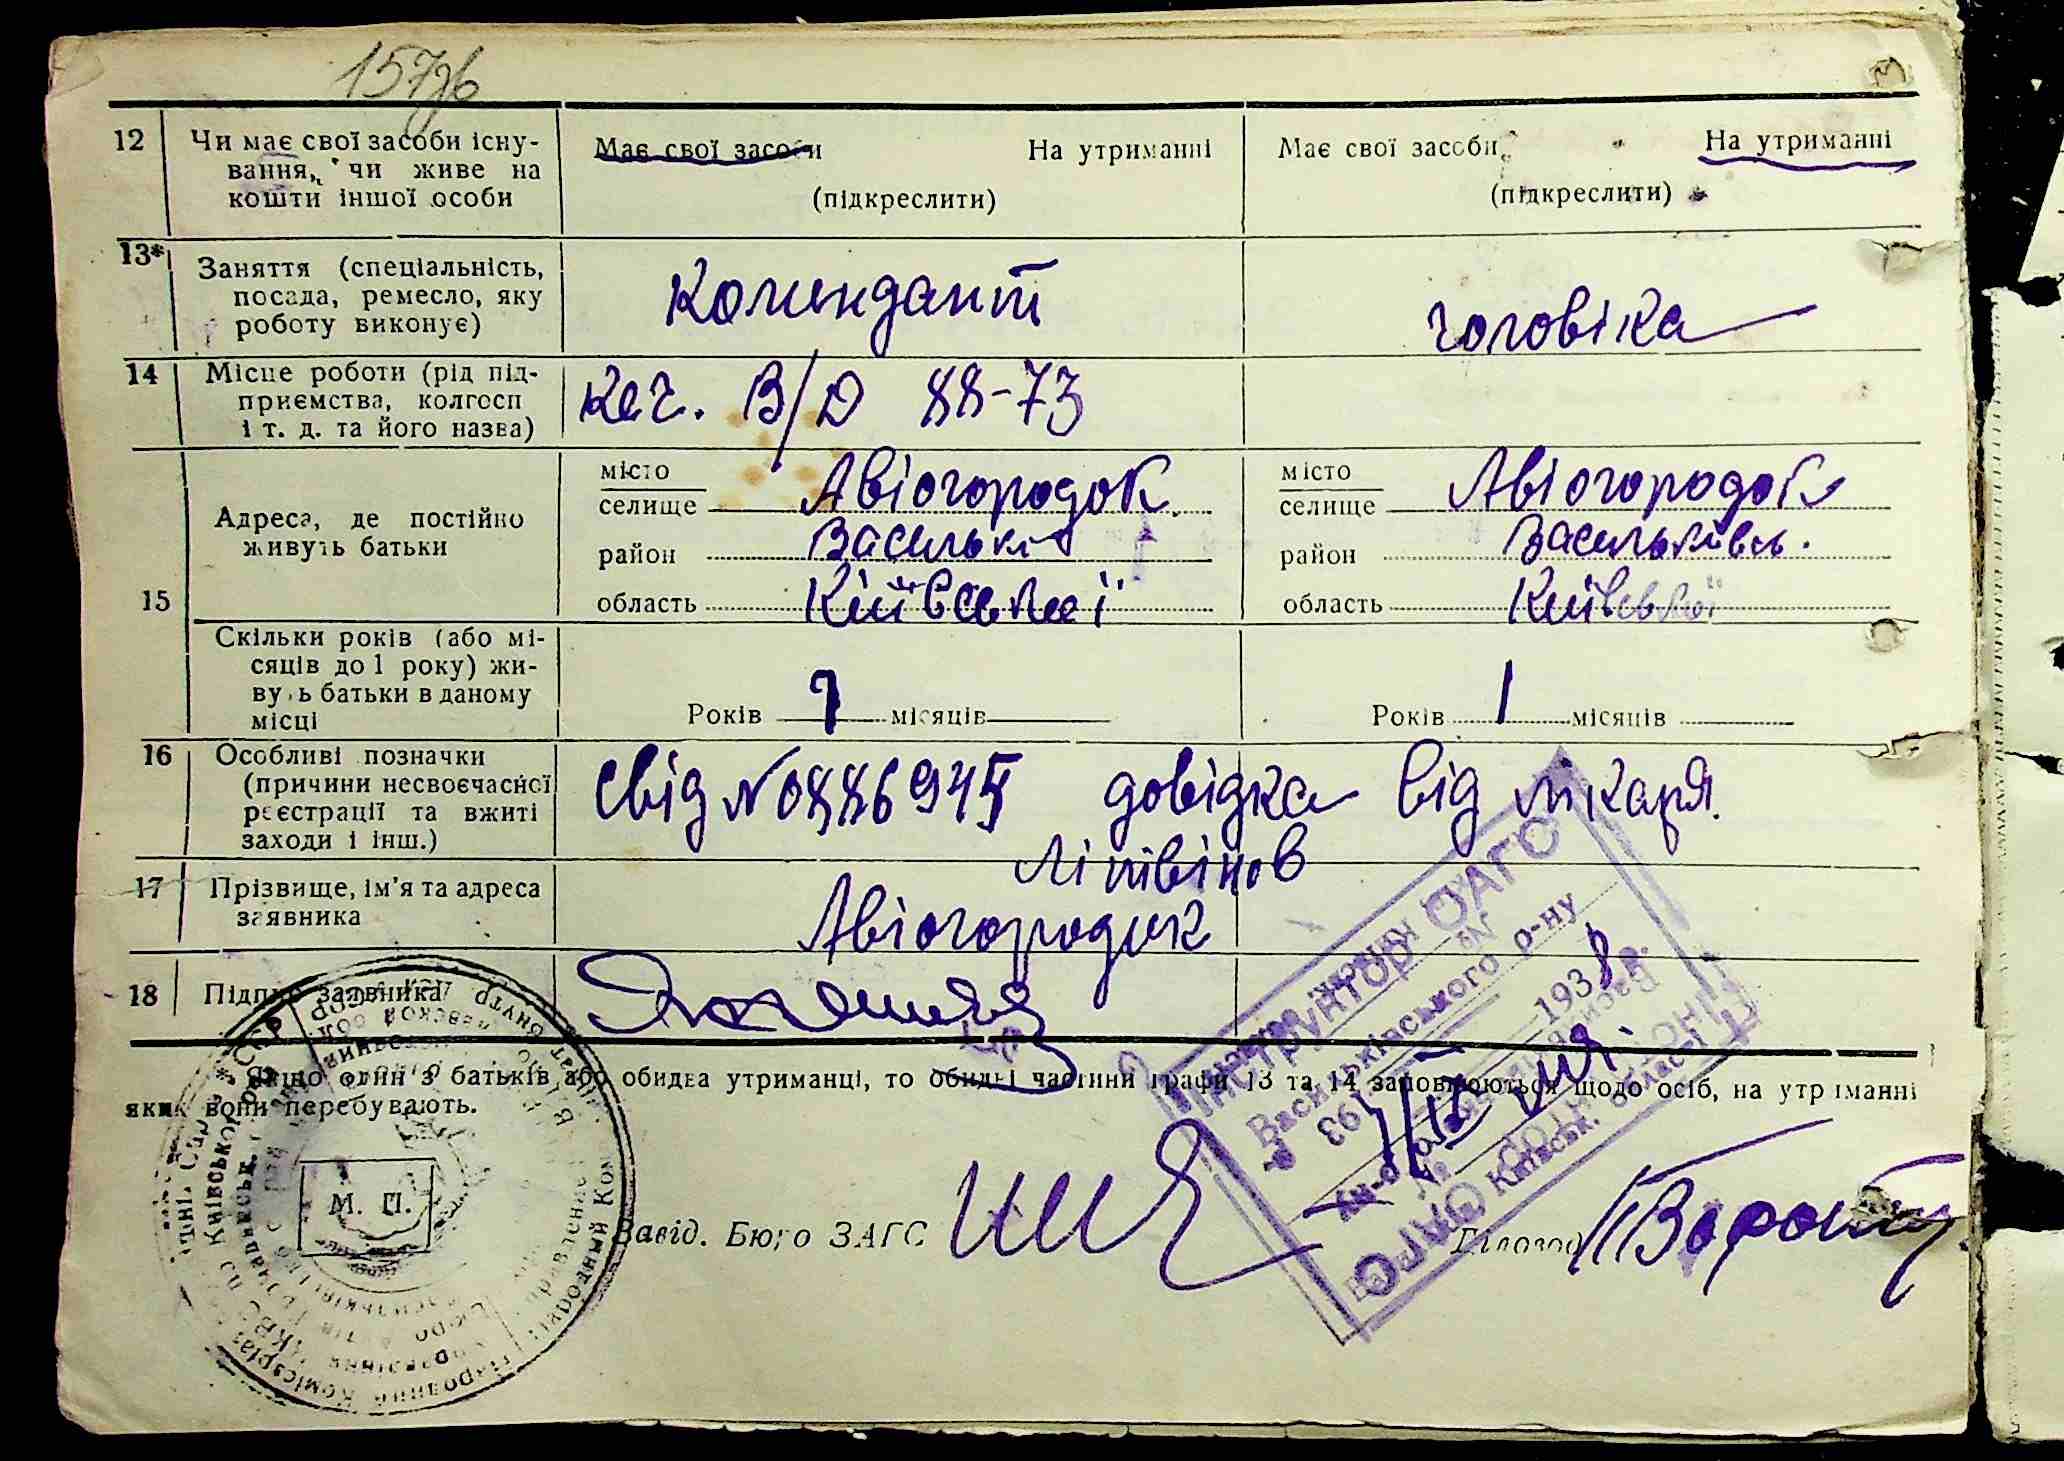 157зв
12 Чи має свої засоби існу-
вання, чи живе на
кошти іншої особи
Має свої засоби На утриманні
(підкреслити)
Має свої засоби На утриманні
(підкреслити)
13* Заняття (спеціальність,
посада, ремесло, яку
роботу виконує)
Комендант
чоловіка
14 Місце роботи (рід під-
приємства, колгосп
і т. д. та його назва)
Кеч. В/О 88-73
15 Адреса, де постійно
живуть батьки
місто
селище Авіогородок
район Василькі
область Київської
місто
селище Авіогородок
район Васильківсь.
область Київської
Скільки років (або мі-
сяців до 1 року) жи-
вуть батьки в даному
місці
Років 7 місяців
Років 1 місяців
16 Особливі позначки
(причини несвоєчасної
реєстрації та вжиті
заходи і інш.)
Свід №0886945 довідка від лікаря.
17 Прізвище, ім'я та адреса
заявника
Літвінов
Авіогородок
18 Підпис заявника
* Якщо один з батьків або обидва утриманці, то обидві частини графи 13 та 14 заповнюються щодо осіб, на утриманні
яких вони перебувають.
Інструктор ОАГС
Васильківського р-ну
1938 р.
М. П.
Завід. Бюро ЗАГС
Діловод